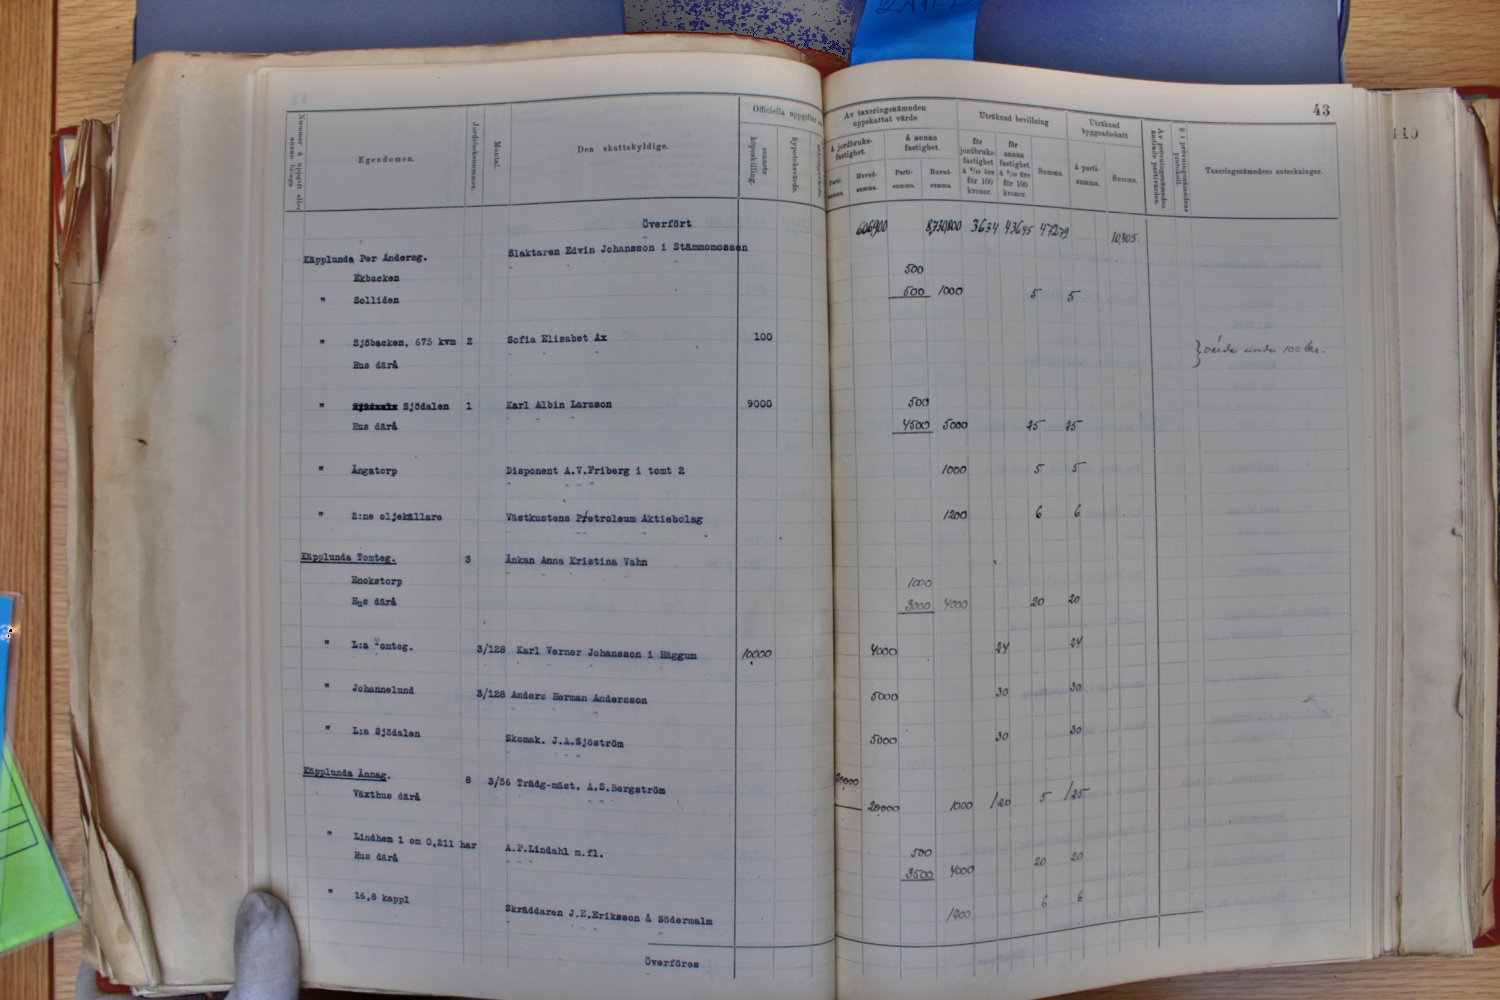 43
Nummer å uppgift eller annan bilaga
Egendomen.
Jordeboksnummer.
Mantal.
Den skattskyldige.
Officiella uppgifter
senaste köpeskilling.
hypoteksvärde.
Av taxeringsnämnden uppskattat värde
å jordbruksfastighet.
å annan fastighet.
Parti-summa.
Huvud-summa.
Parti-summa.
Huvud-summa.
Uträknad bevillning
för jordbruksfastighet
för 100 kronor.
för annan fastighet
för 100 kronor.
Summa.
Uträknad byggnadsskatt
å parti-summa.
Summa.
Av prövningsnämnden ändrade partivärden.
§ i prövningsnämndens protokoll.
Taxeringsnämndens anteckningar.
Överfört 606900 8,730,800 3634 43645 47279 10,805.
Käpplunda Per Andersg. Slaktaren Edvin Johansson i Stämmomossen
Ekbacken 500
" Solliden 500 1000 5 5
" Sjöbacken, 675 kvm 2 Sofia Elisabet Ax 100 } värde under 100 kr.
Hus därå
" Sjödalen 1 Karl Albin Larsson 9000 500
Hus därå 4500 5000 25 25
" Ängatorp Disponent A.V.Friberg i tomt 2 1000 5 5
" 2:ne oljekällare Västkustens Petroleum Aktiebolag 1200 6 6
Käpplunda Tomteg. 3 Änkan Anna Kristina Vahn
Enokstorp 1000
Hus därå 3000 4000 20 20
" L:a Tomteg. 3/128 Karl Verner Johansson i Häggum 10000 4000 24 24
" Johannelund 3/128 Anders Herman Andersson 5000 30 30
" L:a Sjödalen Skomak. J.A.Sjöström 5000 30 30
Käpplunda Ännag. 8 3/56 Trädg-mäst. A.S.Bergström 20000
Växthus därå 20000 1000 120 5 125
" Lindhem 1 om 0,211 har A.P.Lindahl m.fl. 500
Hus därå 3500 4000 20 20
" 16,8 kappl Skräddaren J.E.Eriksson å Södermalm 1200 6 6
Överföres